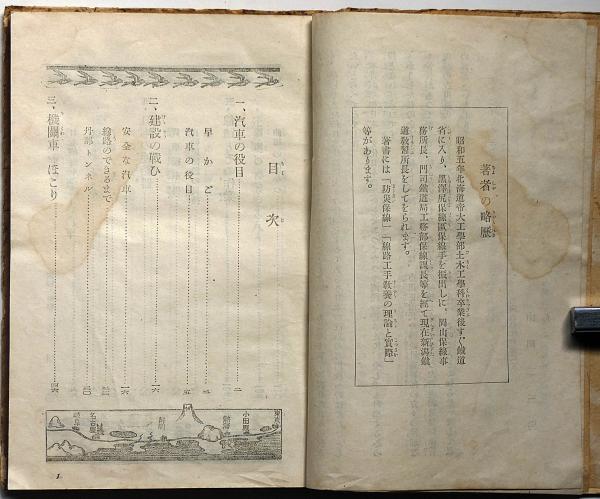 著者の略歴
昭和五年北海道帝大工學部土木工學科卒業後すぐ鐵道
省に入り、黒澤尻保線區保線手を振出しに、岡山保線事
務所長、門司鐵道局工務部保線課長等を經て現在新潟鐵
道教習所長をしてをられます。
著書には「防災保線」「線路工手教養の理論と實際」
等があります。
目次
一、汽車の役目
早かご
汽車の役目
二、建設の戰ひ
安全な汽車
線路のできるまで
丹那トンネル
三、機關車のほこり
小田原
熱海
靜岡
名古屋
岐阜
1